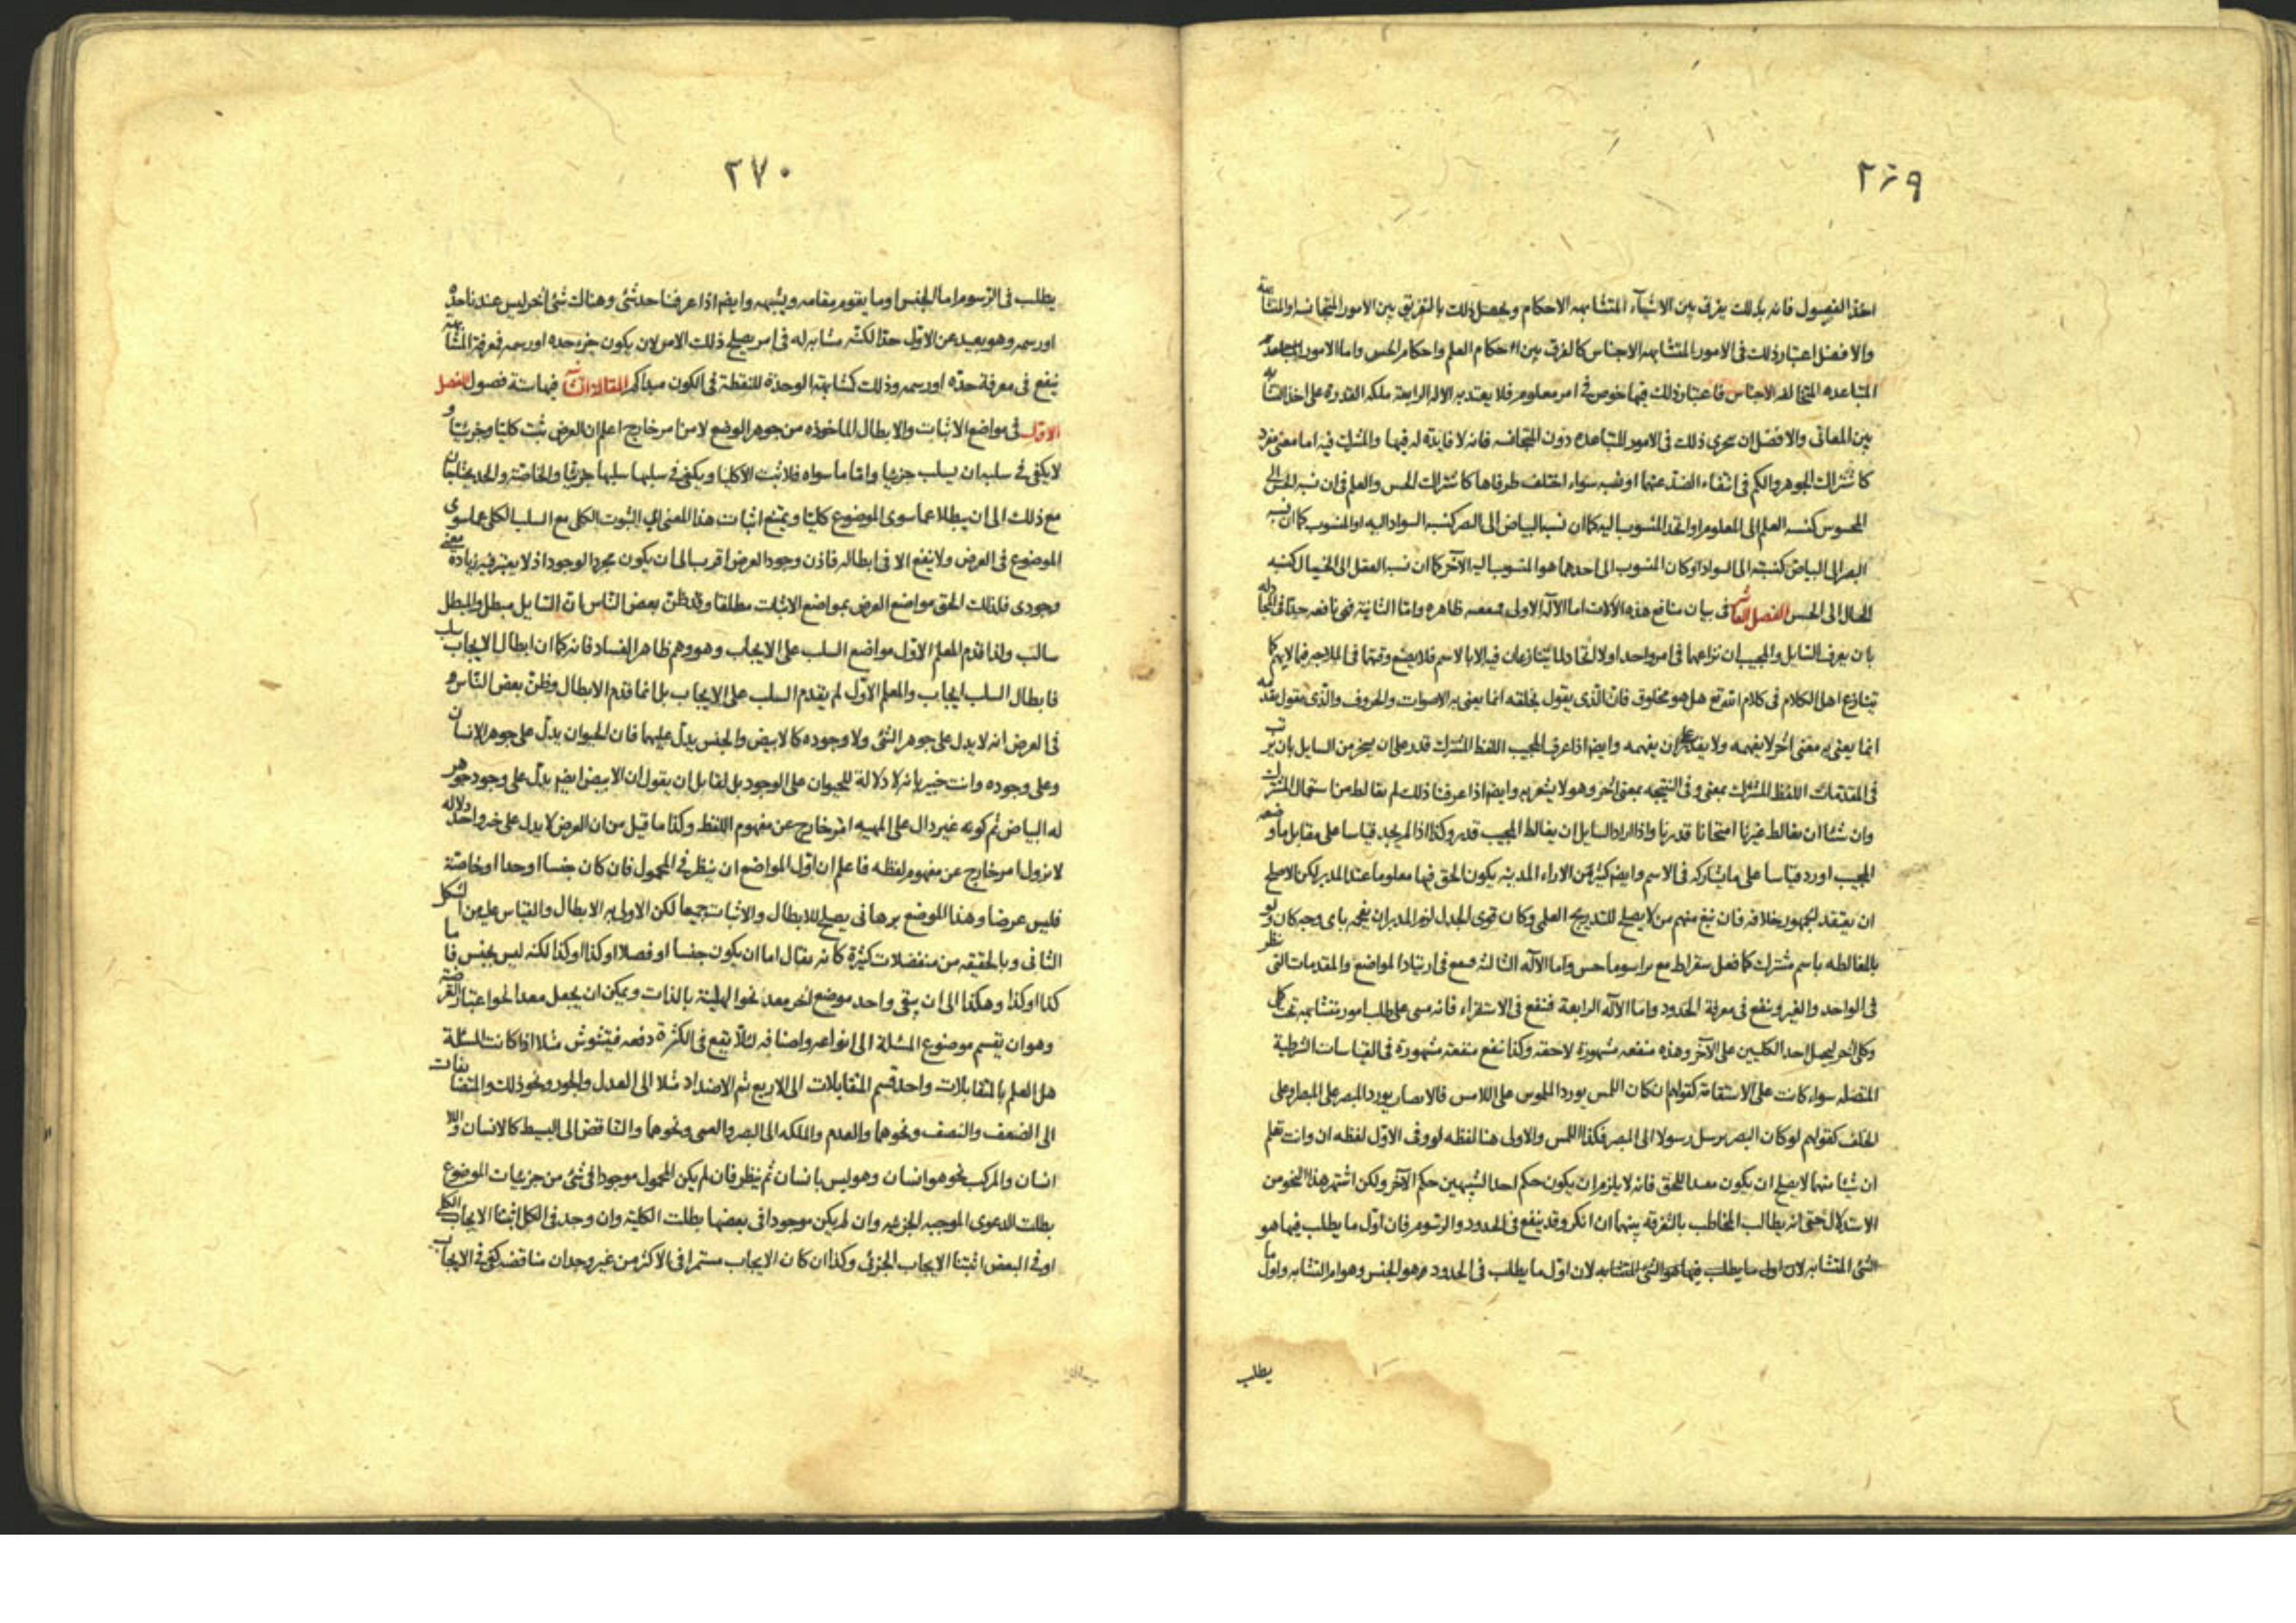 ٢٦٩
اخذ الفصول فانه بذلك يفرق بين الاشيآء المتشابهه الاحكام ويحصل ذلك بالتفريق بين الامور المتجانسه او المتشابهة
والافضل اعتبار ذلك فى الامور المتشابهه الاجناس كالفرق بين احكام العلم واحكام الحس واما الامور
المتباعده المتخالفه الاجناس فاعتبار ذلك فيها خوض فى امر معلوم فلا يعتد به الاله الرابعة ملكه القدرة على اخذ التشابه
بين المعانى والافضل ان يتحرى ذلك فى الامور المتباعده دون المتجانسه فانه لا فايدة له فيها والمشترك فيه اما معنى مفرد
كاشتراك الجوهر والكم فى انتفاء الضد عنهما او نسبه سواء اختلف طرفاها كاشتراك الحس والعلم فى ان نسبه الحس الى
المحسوس كنسبه العلم الى المعلوم او اتحد المنسوب اليه كما ان نسبه البياض الى البصر كنسبه السواد اليه او المنسوب كما ان نسبه
البصر الى البياض كنسبته الى السواد او كان المنسوب الى احدهما هو المنسوب اليه الآخر كما ان نسبه العقل الى الخيال كنسبه
الخيال الى الحس الفصل العاشر فى بيان منافع هذه الآلات اما الآله الاولى فمنفعته ظاهره واما الثانية فهى نافعه جدا فى المجادله
بان يعرف السّايل والمجيب ان نزاعهما فى امر واحد اولا لتجادلا يتنازعان فيه الا بالاسم فلا يضيع وقتهما فى الملاجه فيما لا يهم كما
يتنازع اهل الكلام فى كلام الله تع هل هو مخلوق فان الّذى يقول بخلقه انما يعنى به الاصوات والحروف والّذى يقول بقدمه
انما يعنى به معنى اخر لا يفهمه ولا يقدر على ان يفهمه وايضا اذا عرف المجيب اللفظ المشترك قدر على ان يسخر من السايل بان يرتب
فى المقدمات اللفظ المشترك بمعنى وفى النتيجه بمعنى اخر وهو لا يشعر به وايضا اذا عرفنا ذلك لم يغالطنا من استعمال المشترك
وان شئنا ان نغالط غيرنا امتحانا قدرنا واذا اراد السايل ان يغالط المجيب قدر وكذا اذا لم يجد قياسا على مقابل ما وضعه
المجيب اورد قياسا على ما يشاركه فى الاسم وايضا كثير من الاراء المدنيه يكون الحق فيها معلوما عند المدبر لكن الاصلح
ان يعتقد الجمهور خلافه فان نبغ منهم من لا يصلح للتدريج العلمى وكان قوى الجدل لزم المدبر ان يفحمه باى وجه كان ولو
بالمغالطه باسم مشترك كما فعل سقراط مع براسوماخس واما الآله الثالثه فتنفع فى ارتياد المواضع والمقدمات التى نظر
فى الواحد والغير وينفع فى معرفة الحدود واما الآله الرابعة فتنفع فى الاستقراء فانه مبنى على طلب امور متشابهه تحت كل
وكلى آخر ليحمل احد الكليين على الآخر وهذه منفعه مشهورة لاحقه وكذا تنفع منفعته مشهوده فى القياسات الشرطية
المتصله سواء كانت على الاستقامة كقولهم ان كان اللمس يورد الملموس على اللامس فالابصار يورد المبصر على المبصر وعلى
الخلف كقولهم لو كان البصر يرسل رسولا الى المبصر فكذا اللمس والاولى هنا لفظه لو وفى الاوّل لفظه ان وانت تعلم
ان شيئا منهما لا يصلح ان يكون معدا للحق فانه لا يلزم ان يكون حكم احد الشبيهين حكم الآخر ولكن اشتهر هذا النحو من
الاستدلال حتى انه يطالب المخاطب بالتفرقه بينهما ان انكر وقد ينفع فى الحدود والرسوم فان اوّل ما يطلب فيها هو
الشئ المتشابه لان اول ما يطلب فيها هو الشئ المتشابه لان اوّل ما يطلب فى الحدود هو الجنس وهو امر التشابه واول ما
يطلب
٢٧٠
يطلب فى الرّسوم اما الجنس او ما يقوم مقامه ويشبهه وايضا اذا عرفنا حد شئ وهناك شئ اخر ليس عندنا حدّه
او رسمه وهو بعيد عن الاوّل حدّا لكنّه مشابه له فى امر يصلح ذلك الامر لان يكون جزء حده او رسمه فمعرفة المشابهه
ينفع فى معرفة حدّه او رسمه وذلك كمشابهة الوحدة للنقطة فى الكون مبدا كم المقالة الثانية فيها ستة فصول الفصل
الاوّل فى مواضع الاثبات والابطال الماخوذه من جوهر الوضع لا من امر خارج اعلم ان العرض يثبت كليّا وجزئيّا و
لا يكفى فى سلبه ان يسلب جزئيا وامّا ما سواه فلا يثبت الا كليّا ويكفى فى سلبها سلبها جزئيّا والخاصّة والحد يحتاجان
مع ذلك الى ان يبطلا عما سوى الموضوع كليّا ويمتنع اثبات هذا المعنى اى الثبوت الكلى مع السلب الكلى عما سوى
الموضوع فى العرض ولا ينفع الا فى ابطاله فاذن وجود العرض اقرب الى ان يكون مجرد الوجود اذ لا يعتبر فيه زيادة معنى
وجودى فلذلك الحق مواضع العرض بمواضع الاثبات مطلقا وقد ظنّ بعض النّاس ان السّايل مبطل والمبطل
سالب ولذا قدم المعلم الاوّل مواضع السلب على الايجاب وهو وهم ظاهر الفساد فانه كما ان ابطال الايجاب سلب
فابطال السلب ايجاب والمعلم الاوّل لم يقدم السلب على الايجاب بل انما قدم الابطال وظنّ بعض النّاس
فى العرض انه لا يدل على جوهر الشئ ولا وجوده كالابيض والجنس يدلّ عليهما فان الحيوان يدلّ على جوهر الانسان
وعلى وجوده وانت خبير بانه لا دلالة للحيوان على الوجود بل لقايل ان يقول ان الابيض ايضا يدلّ على وجود جوهر
له البياض ثم كونه غير دال على المهيه امر خارج عن مفهوم اللفظ وكذا ما قيل من ان العرض لا يدل على حد واحد دلاله
لا يزول امر خارج عن مفهوم لفظه فاعلم ان اوّل المواضع ان ينظر فى المحمول فان كان جنسا او حدا او خاصّة
فليس عرضا وهذا الموضع برهانى يصلح للابطال والاثبات جميعا لكن الاولى به الابطال والقياس عليه من الشكل
الثانى وبالحقيقه من منفصلات كثيرة كانه يقال اما ان يكون جنسا او فصلا او كذا او كذا لكنه ليس بجنس فاما
كذا او كذا وهكذا الى ان يبقى واحد موضع اخر معد نحو الهليّة بالذات ويمكن ان يجعل معدا نحو اعتبار القرضية
وهو ان يقسم موضوع المسئلة الى انواعه واصنافه لئلّا يقع فى الكثرة دفعه فيتشوش مثلا اذا كانت المسئلة
هل العلم بالمتقابلات واحد قسم المتقابلات الى الاربع ثم الاضداد مثلا الى العدل والجور ونحو ذلك والمتضايفات
الى الضعف والنصف ونحوهما والعدم والملكه الى البصر والعمى ونحوهما والتناقض الى البسيط كالانسان واللا
انسان والمركب نحو هو انسان وهو ليس بانسان ثم ينظر فان لم يكن المحمول موجودا فى شئ من جزئيات الموضوع
بطلت الدعوى الموجبه الجزئيه وان لم يكن موجودا فى بعضها بطلت الكلية وان وجد فى الكل اثبتنا الايجاب الكلى
او فى البعض اثبتنا الايجاب الجزئى وكذا ان كان الايجاب مستمرا فى الاكثر من غير وجدان مناقضه كفى فى الايجاب